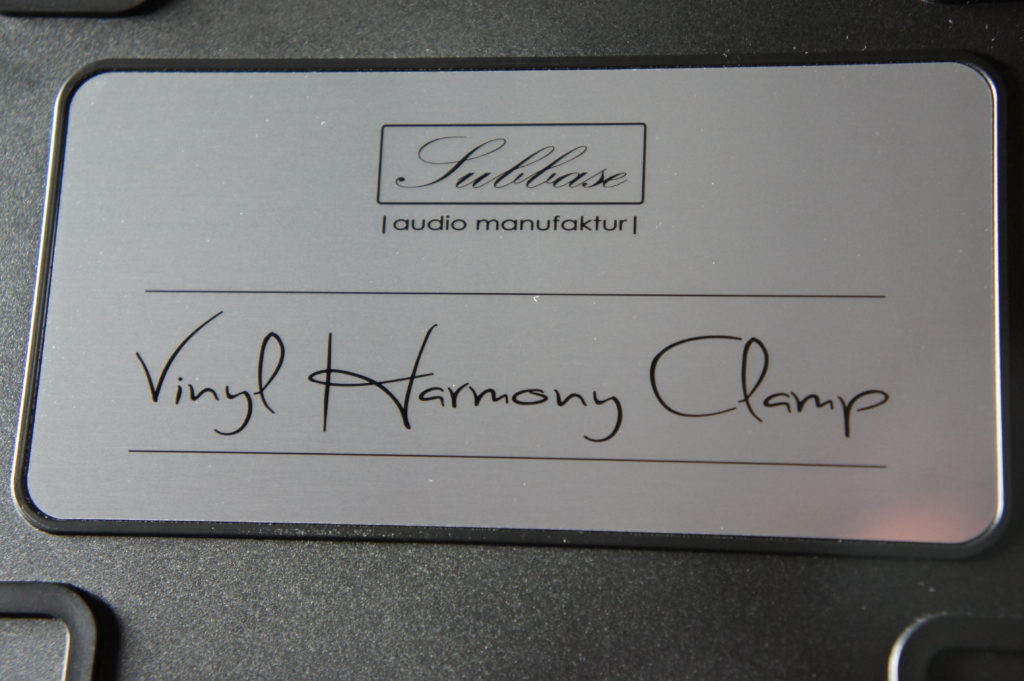 Subbase
|audio manufaktur|
Vinyl Harmony Clamp